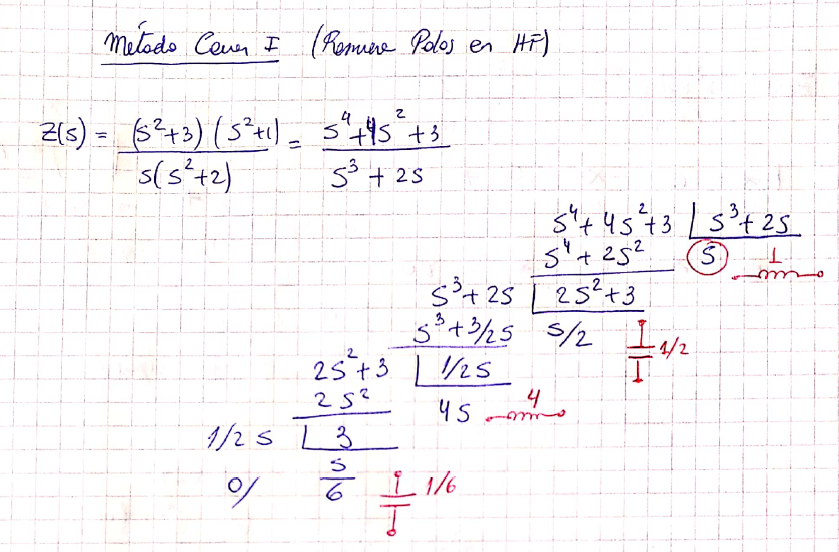 Método Cauer I (Remueve Polos en HF)
Z(s) = (s²+3)(s²+1) / s(s²+2) = s⁴+4s²+3 / s³+2s
s⁴+4s²+3 | s³+2s
s⁴+2s² s 1
s³+2s | 2s²+3
s³+3/2s s/2 1/2
2s²+3 | 1/2s
2s² 4s 4
1/2s | 3
0/ s/6 1/6